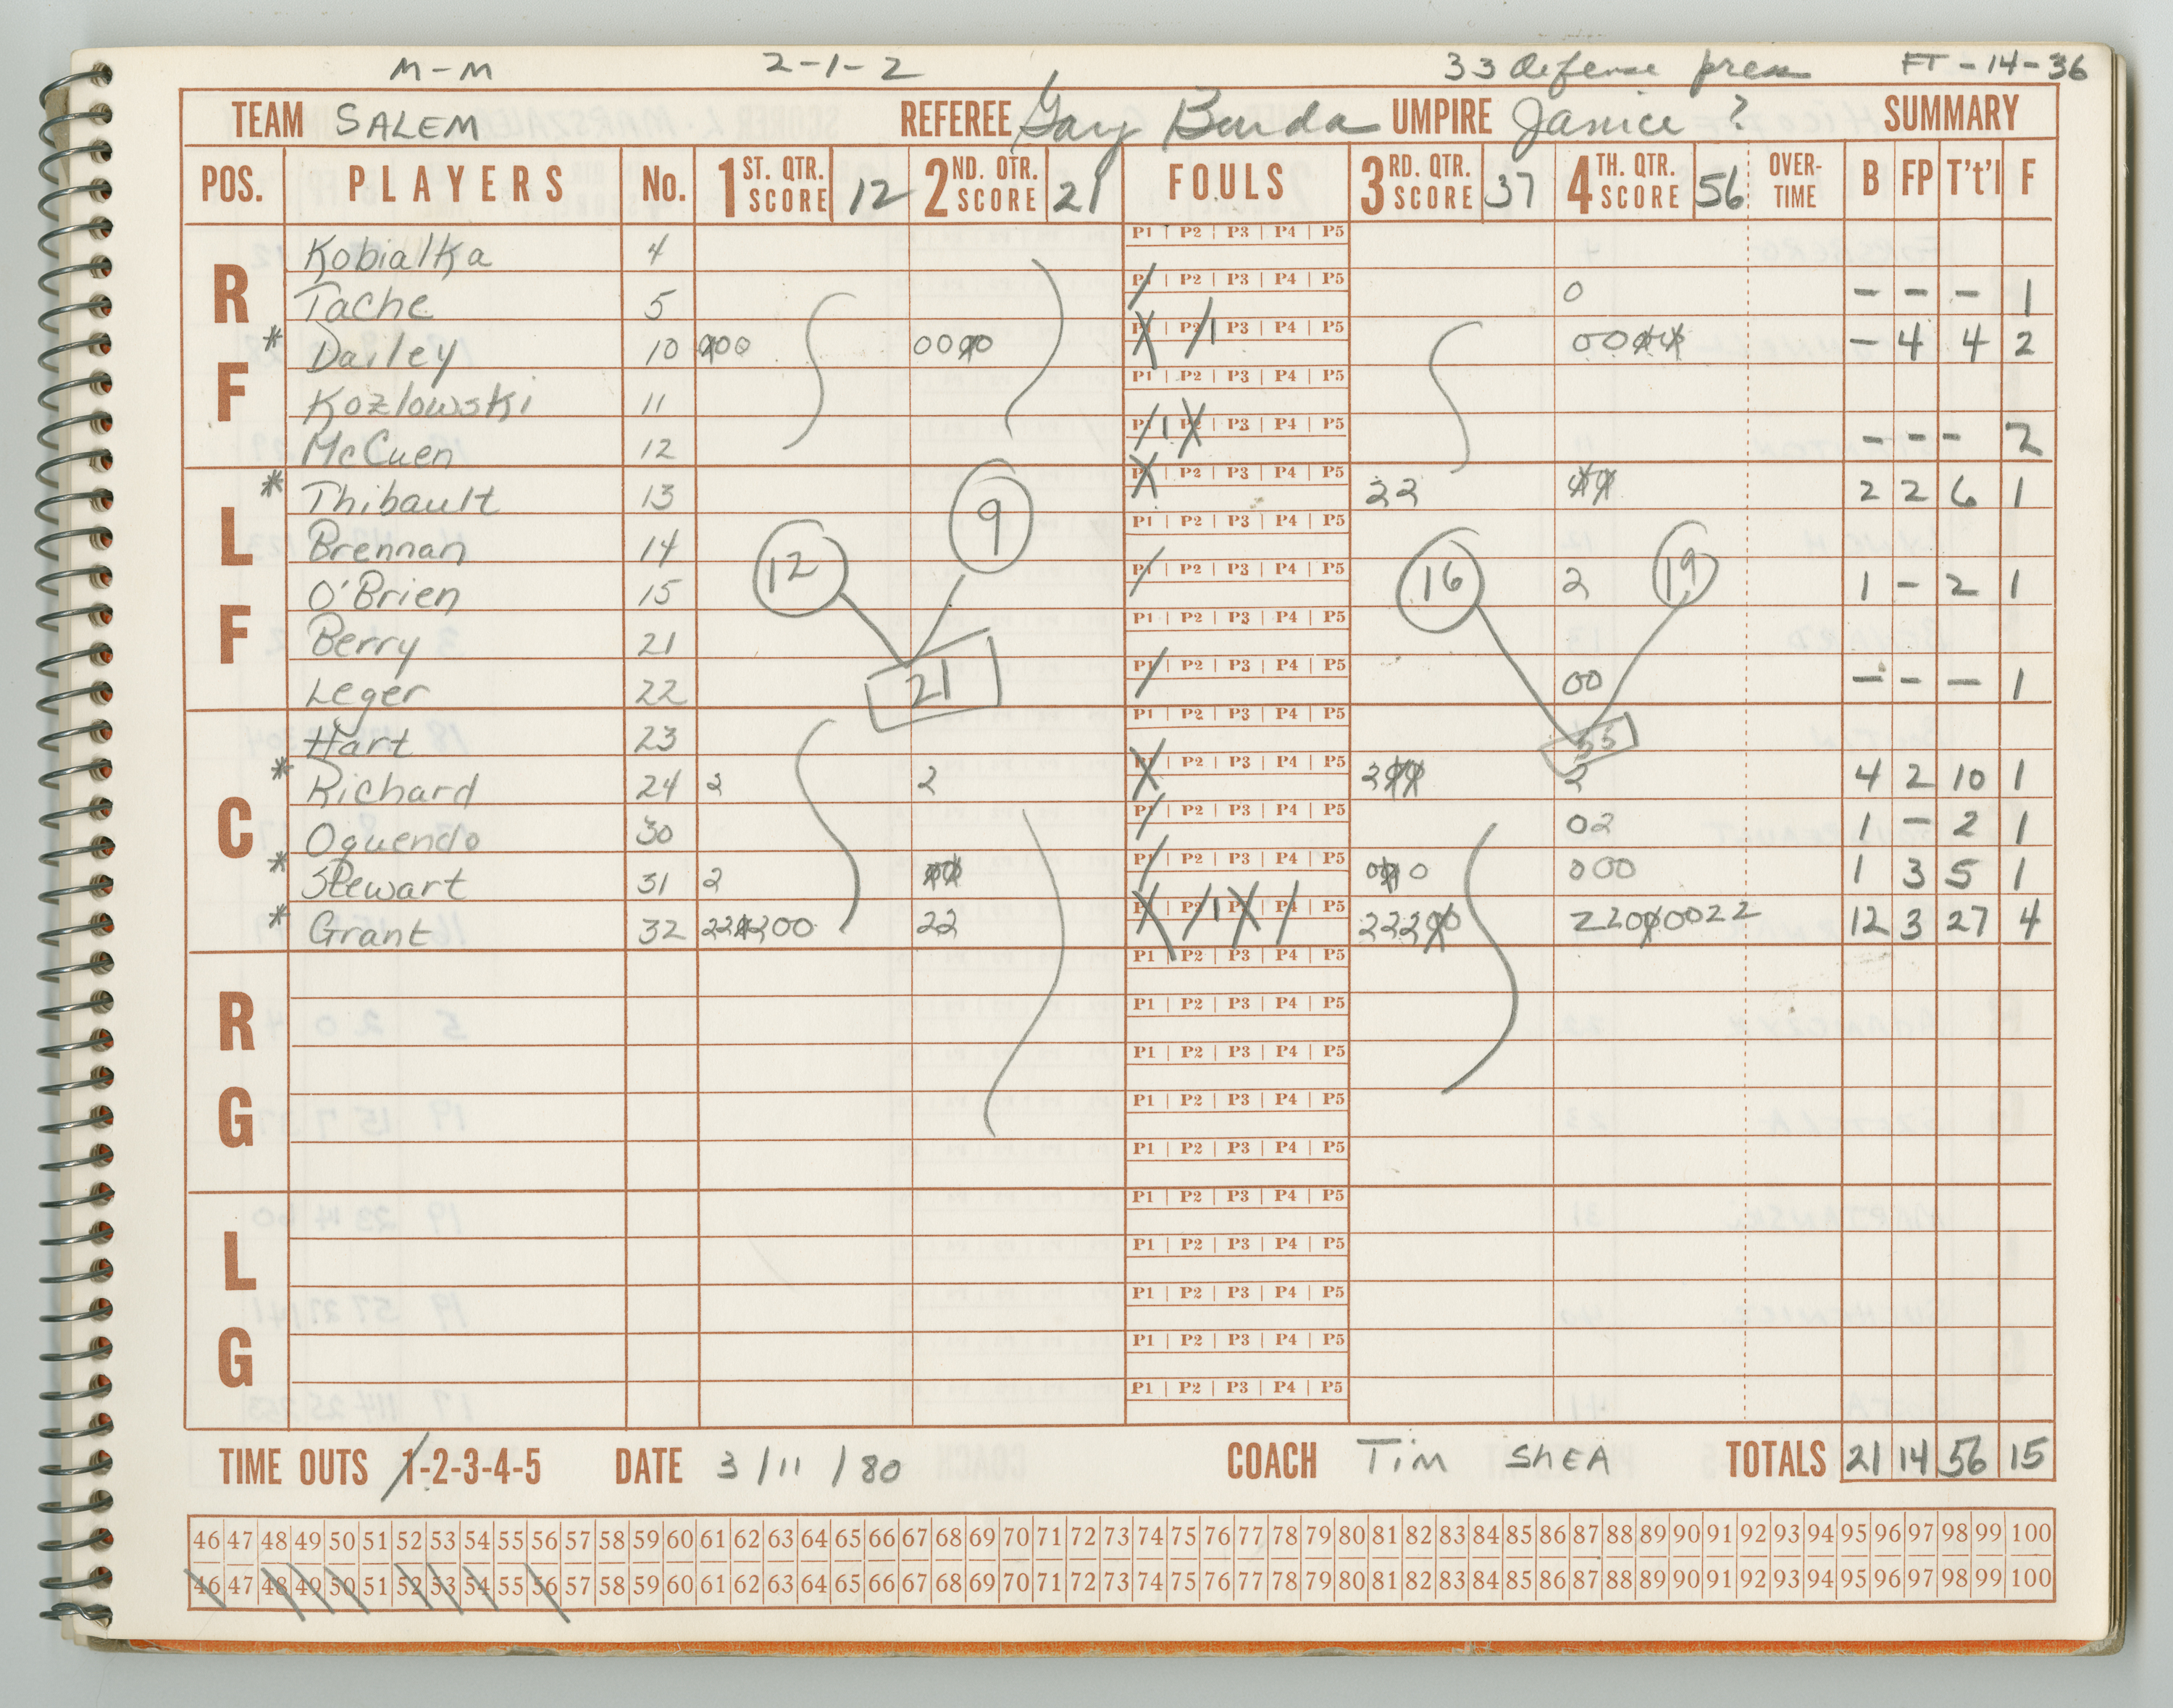 M-M 2-1-2 33 defense press FT-14-36
TEAM SALEM REFEREE Gary Burda UMPIRE Janice ? SUMMARY
POS. PLAYERS No. 1ST. QTR. SCORE 12 2ND. QTR. SCORE 21 FOULS 3RD. QTR. SCORE 37 4TH. QTR. SCORE 56 OVER-TIME B FP T't'l F
RF
Kobialka 4 P1 | P2 | P3 | P4 | P5
Tache 5 P1 | P2 | P3 | P4 | P5 0 - - - 1
* Dailey 10 000 0000 P1 | P2 | P3 | P4 | P5 0000 - 4 4 2
Kozlowski 11 P1 | P2 | P3 | P4 | P5
McCuen 12 P1 | P2 | P3 | P4 | P5 - - - 2
LF
* Thibault 13 P1 | P2 | P3 | P4 | P5 22 00 2 2 6 1
Brennan 14 9 P1 | P2 | P3 | P4 | P5
O'Brien 15 12 P1 | P2 | P3 | P4 | P5 16 2 19 1 - 2 1
Berry 21 P1 | P2 | P3 | P4 | P5
Leger 22 21 P1 | P2 | P3 | P4 | P5 00 - - - 1
C
Hart 23 P1 | P2 | P3 | P4 | P5
* Richard 24 2 2 P1 | P2 | P3 | P4 | P5 200 2 4 2 10 1
Oquendo 30 P1 | P2 | P3 | P4 | P5 02 1 - 2 1
* Stewart 31 2 00 P1 | P2 | P3 | P4 | P5 000 000 1 3 5 1
* Grant 32 220200 22 P1 | P2 | P3 | P4 | P5 22200 22000022 12 3 27 4
RG
P1 | P2 | P3 | P4 | P5
P1 | P2 | P3 | P4 | P5
P1 | P2 | P3 | P4 | P5
P1 | P2 | P3 | P4 | P5
P1 | P2 | P3 | P4 | P5
LG
P1 | P2 | P3 | P4 | P5
P1 | P2 | P3 | P4 | P5
P1 | P2 | P3 | P4 | P5
P1 | P2 | P3 | P4 | P5
P1 | P2 | P3 | P4 | P5
TIME OUTS 1-2-3-4-5 DATE 3/11/80 COACH Tim SHEA TOTALS 21 14 56 15
46 47 48 49 50 51 52 53 54 55 56 57 58 59 60 61 62 63 64 65 66 67 68 69 70 71 72 73 74 75 76 77 78 79 80 81 82 83 84 85 86 87 88 89 90 91 92 93 94 95 96 97 98 99 100
46 47 48 49 50 51 52 53 54 55 56 57 58 59 60 61 62 63 64 65 66 67 68 69 70 71 72 73 74 75 76 77 78 79 80 81 82 83 84 85 86 87 88 89 90 91 92 93 94 95 96 97 98 99 100